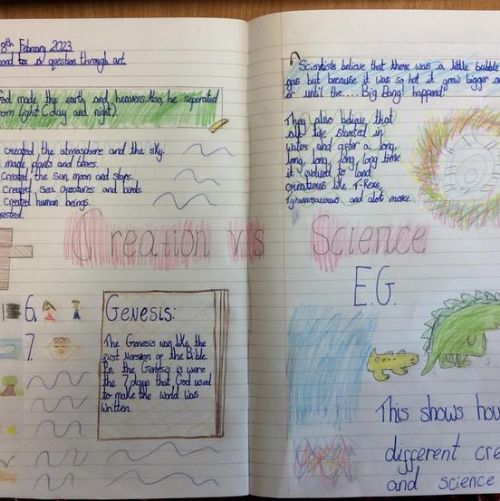 8th February 2023
question through art.
God made the earth and heavens. Also, he separated
from light (day and night).
created the atmosphere and the sky.
made plants and trees.
Created the sun, moon and stars.
Created sea creatures and birds
Created human beings.
rested.
Creation vs Science
6.
7.
Genesis:
The Genesis was like the
first version of the Bible.
In the Genesis is were
the 7 days that God used
to make the world was
written.
Scientists believe that there was a little bubble
gas but because it was so hot it grew bigger
or until the.... Big Bang! happened!
They also believe that
all life started in
water and after a long,
long, long, long, long time
it evolved to land
creatures like T-Rexs,
Tyranosauraus and alot more.
E.G.
This shows how
different cre
and science